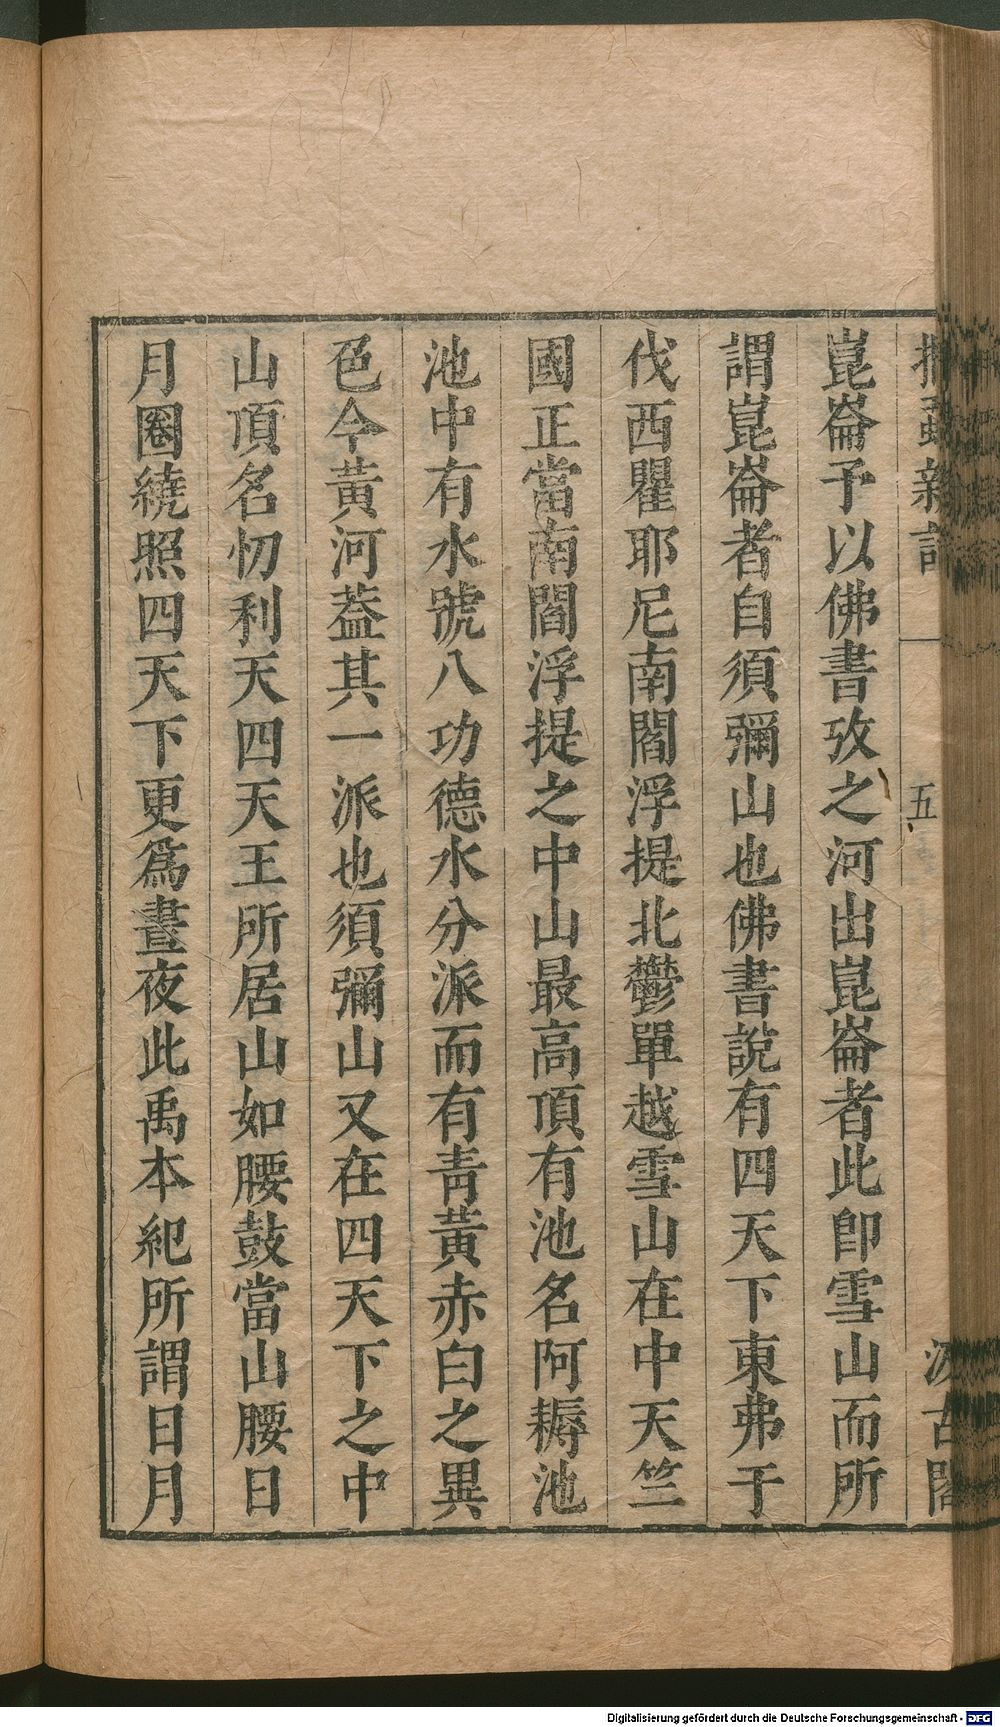 捫蝨新話 五 汲古閣
崑崙予以佛書攷之河出崑崙者此卽雪山而所
謂崑崙者自須彌山也佛書說有四天下東弗于
伐西瞿耶尼南閻浮提北鬱單越雪山在中天竺
國正當南閻浮提之中山最高頂有池名阿耨池
池中有水號八功德水分派而有青黃赤白之異
色今黃河葢其一派也須彌山又在四天下之中
山頂名忉利天四天王所居山如腰鼓當山腰日
月圈繞照四天下更爲晝夜此禹本紀所謂日月
Digitalisierung gefördert durch die Deutsche Forschungsgemeinschaft - DFG